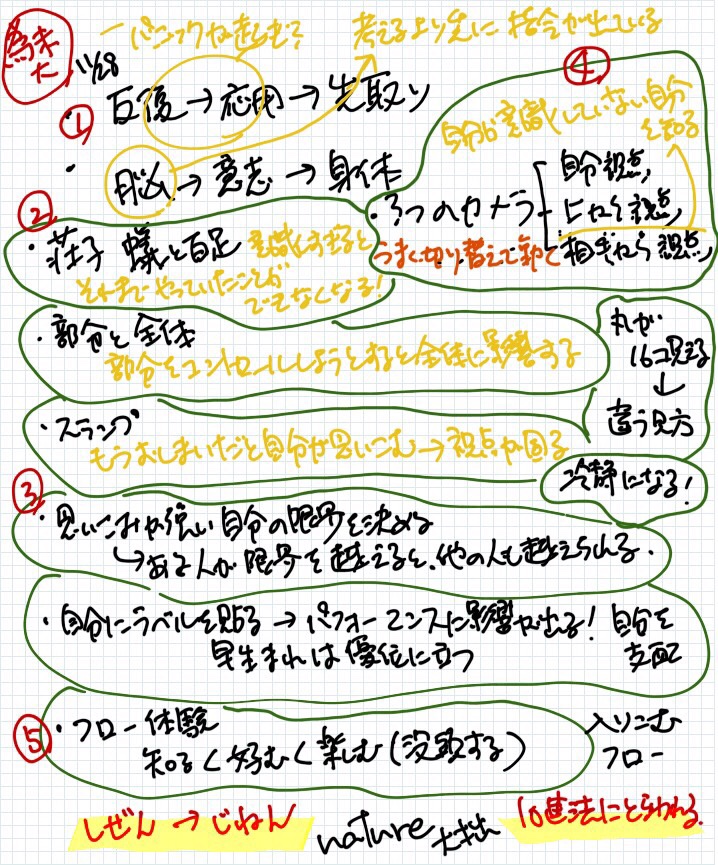 為末
大
11/28
パニックが起む?
考えるより先に指令が出ている
①
反復→応用→先取り
・脳→意志→身体
④
自分が意識していない自分
を知る
・3つのカメラ
自分視点
ヒヤク視点
相手から視点
うまく切り替えて動く
②
・荘子 蟻と百足
意識しすぎると
それまでやっていたことが
できなくなる!
・部分と全体
部分をコントロールしようとすると全体に影響する
・スランプ
もうおしまいだと自分が思いこむ→視点が固る
丸が
16コ見える
↓
違う見方
冷静になる!
③
・思いこみが強い 自分の限界を決める
↳ある人が限界を越えると、他の人も越えられる。
・自分にラベルを貼る→パフォーマンスに影響が出る!
自分を
支配
早生まれは優位に立つ
⑤
・フロー体験
知る<好む<楽しむ(没頭する)
入りこむ
フロー
しぜん→じねん
nature
10進法にとらわれる。